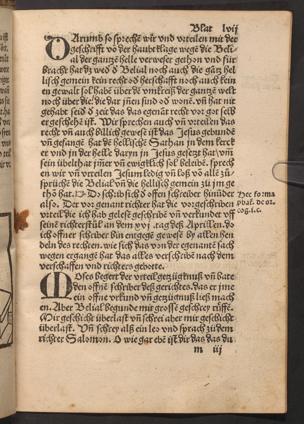 Blat lvij
DArumb so spreche wir vnd vrteilen mit der
geschrifft vō der haubtklage wege die Beli-
al der gantzē helle verweser gethon vnd für
bracht hat dz wed d Belial noch auch die gātz hel
lisch gemein kein recht od herschafft noch auch kein
en gewalt sol habē über dē vmkreiß der gantzē welt
noch über die/ die dar jnen sind od wonē. vn hat nit
gehabt seid d zeit das das genāt rechte vor gott selb
er geschehē ist. Wir sprechen auch vn vrteilen das
recht vn auch billich gewesē ist das Jesus gebundē
vn gefangē hat dē hellischē Sathan in dem kerck
er vnd in der helle daryn in Jesus gesetzt hat/vn
sein übelthat jmer vn ewiglich sol beleibē. sprech
en wir vn vrteilen Jesum ledig vn loß vō alle zu
sprüche die Belial vn die hellisch gemein zu jm ge
thō hat. Do schreib sich d offen schreiber hinüber
also. Der vor genant richter hat die vorgeschriben
vrteil die ich hab gelesē geschribē vn verkundet vff
seinē richterstul an dem xxvj. tag deß Aprillen. So
ich offner schreiber bin engegē gewesē by allen hen
deln des rechten. wie sich das von der egenātē sach
wegen ergangē hat das alles verschribē nach dem
verschaffen vnd richters gebotte.
MOses begert der vrteil gezügknuß vn bate
den offnē schreiber deß gerichtes. das er jme
ein offne vrkund vn gezügnuß ließ mach
en. Aber Belial begunde mit grosse geschrey rüffē.
Mir geschicht überlast vn schrei aber mir geschicht
überlast. Vn schrey als ein leo vnd sprach zu dem
richter Salomon. O wie gar bōß ist dir das das du
m iij
Hec forma